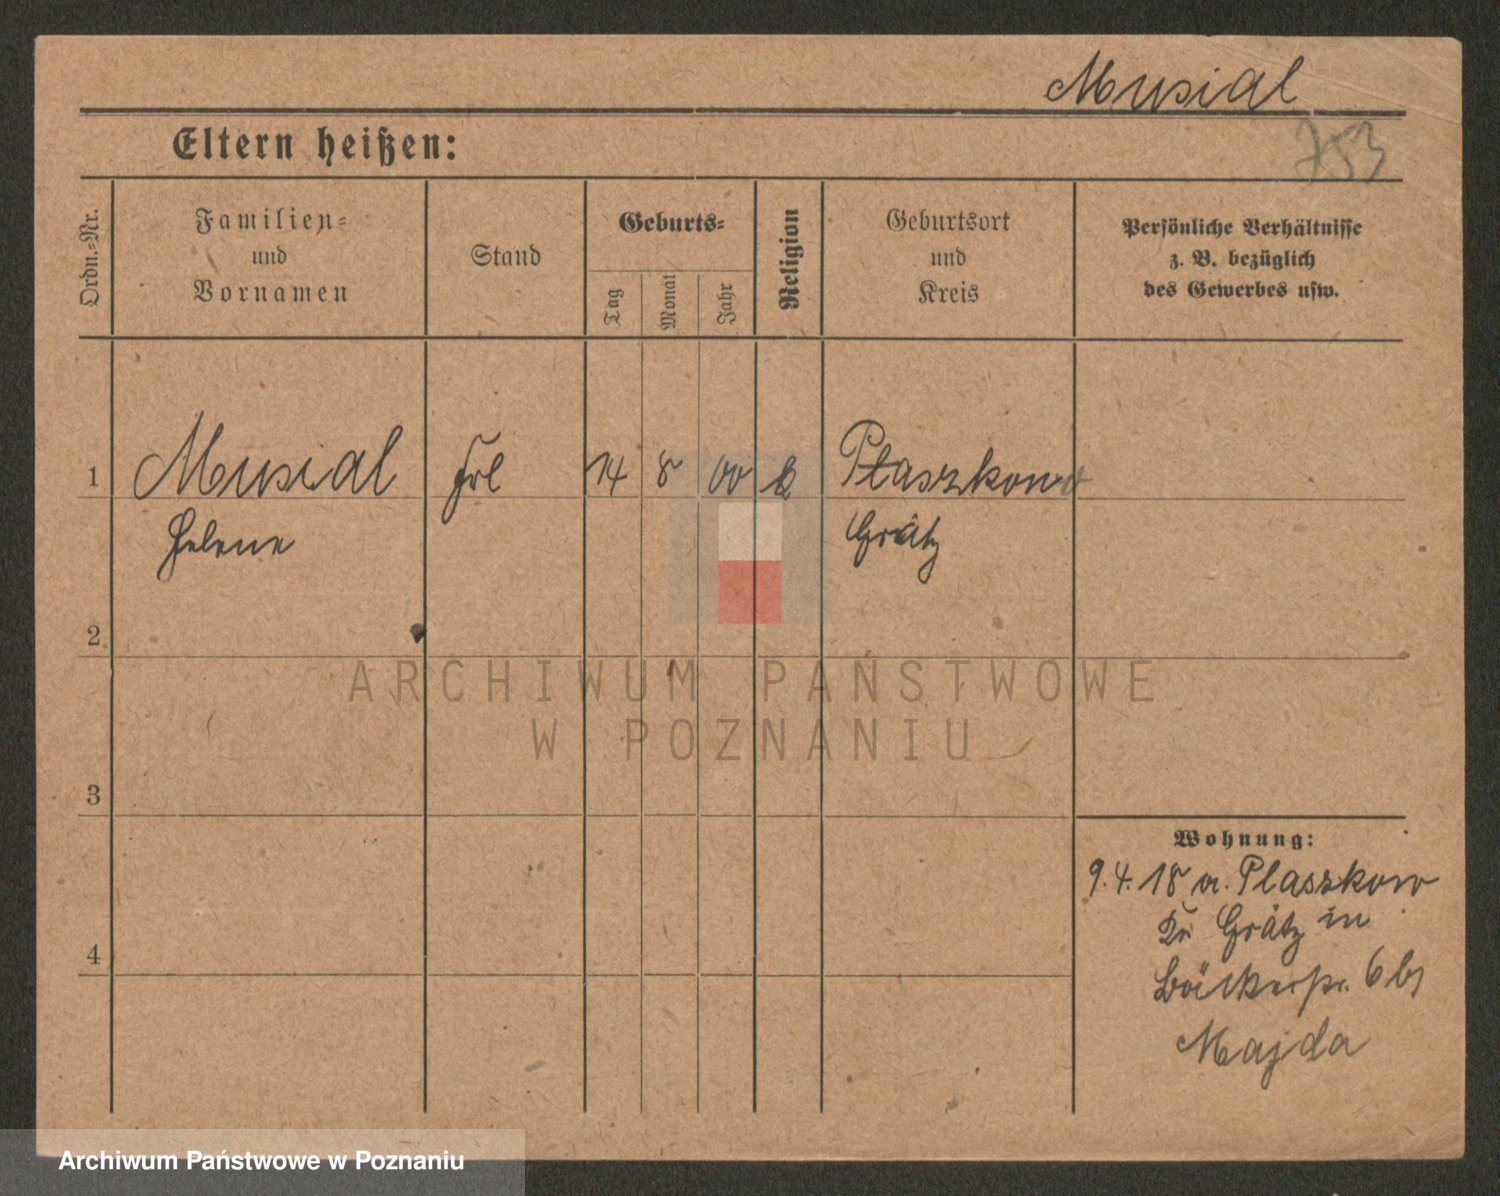 Musial
Eltern heißen:
753
Ordn.=Nr.
Familien=
und
Vornamen
Stand
Geburts=
Tag
Monat
Jahr
Religion
Geburtsort
und
Kreis
Persönliche Verhältnisse
z. B. bezüglich
des Gewerbes usw.
1 Musial Frl 14 8 00 k Ptaszkowo
Helene Grätz
2
ARCHIWUM PAŃSTWOWE
W POZNANIU
3
Wohnung:
9.4.18 v. Plaszkowo
Kr Grätz in
4
Bäckerstr. 6 bj
Majda
Archiwum Państwowe w Poznaniu